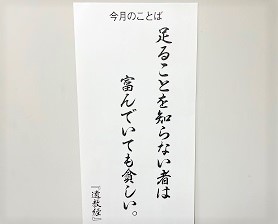 今月のことば
足ることを知らない者は
富んでいても貧しい。
『遺教経』